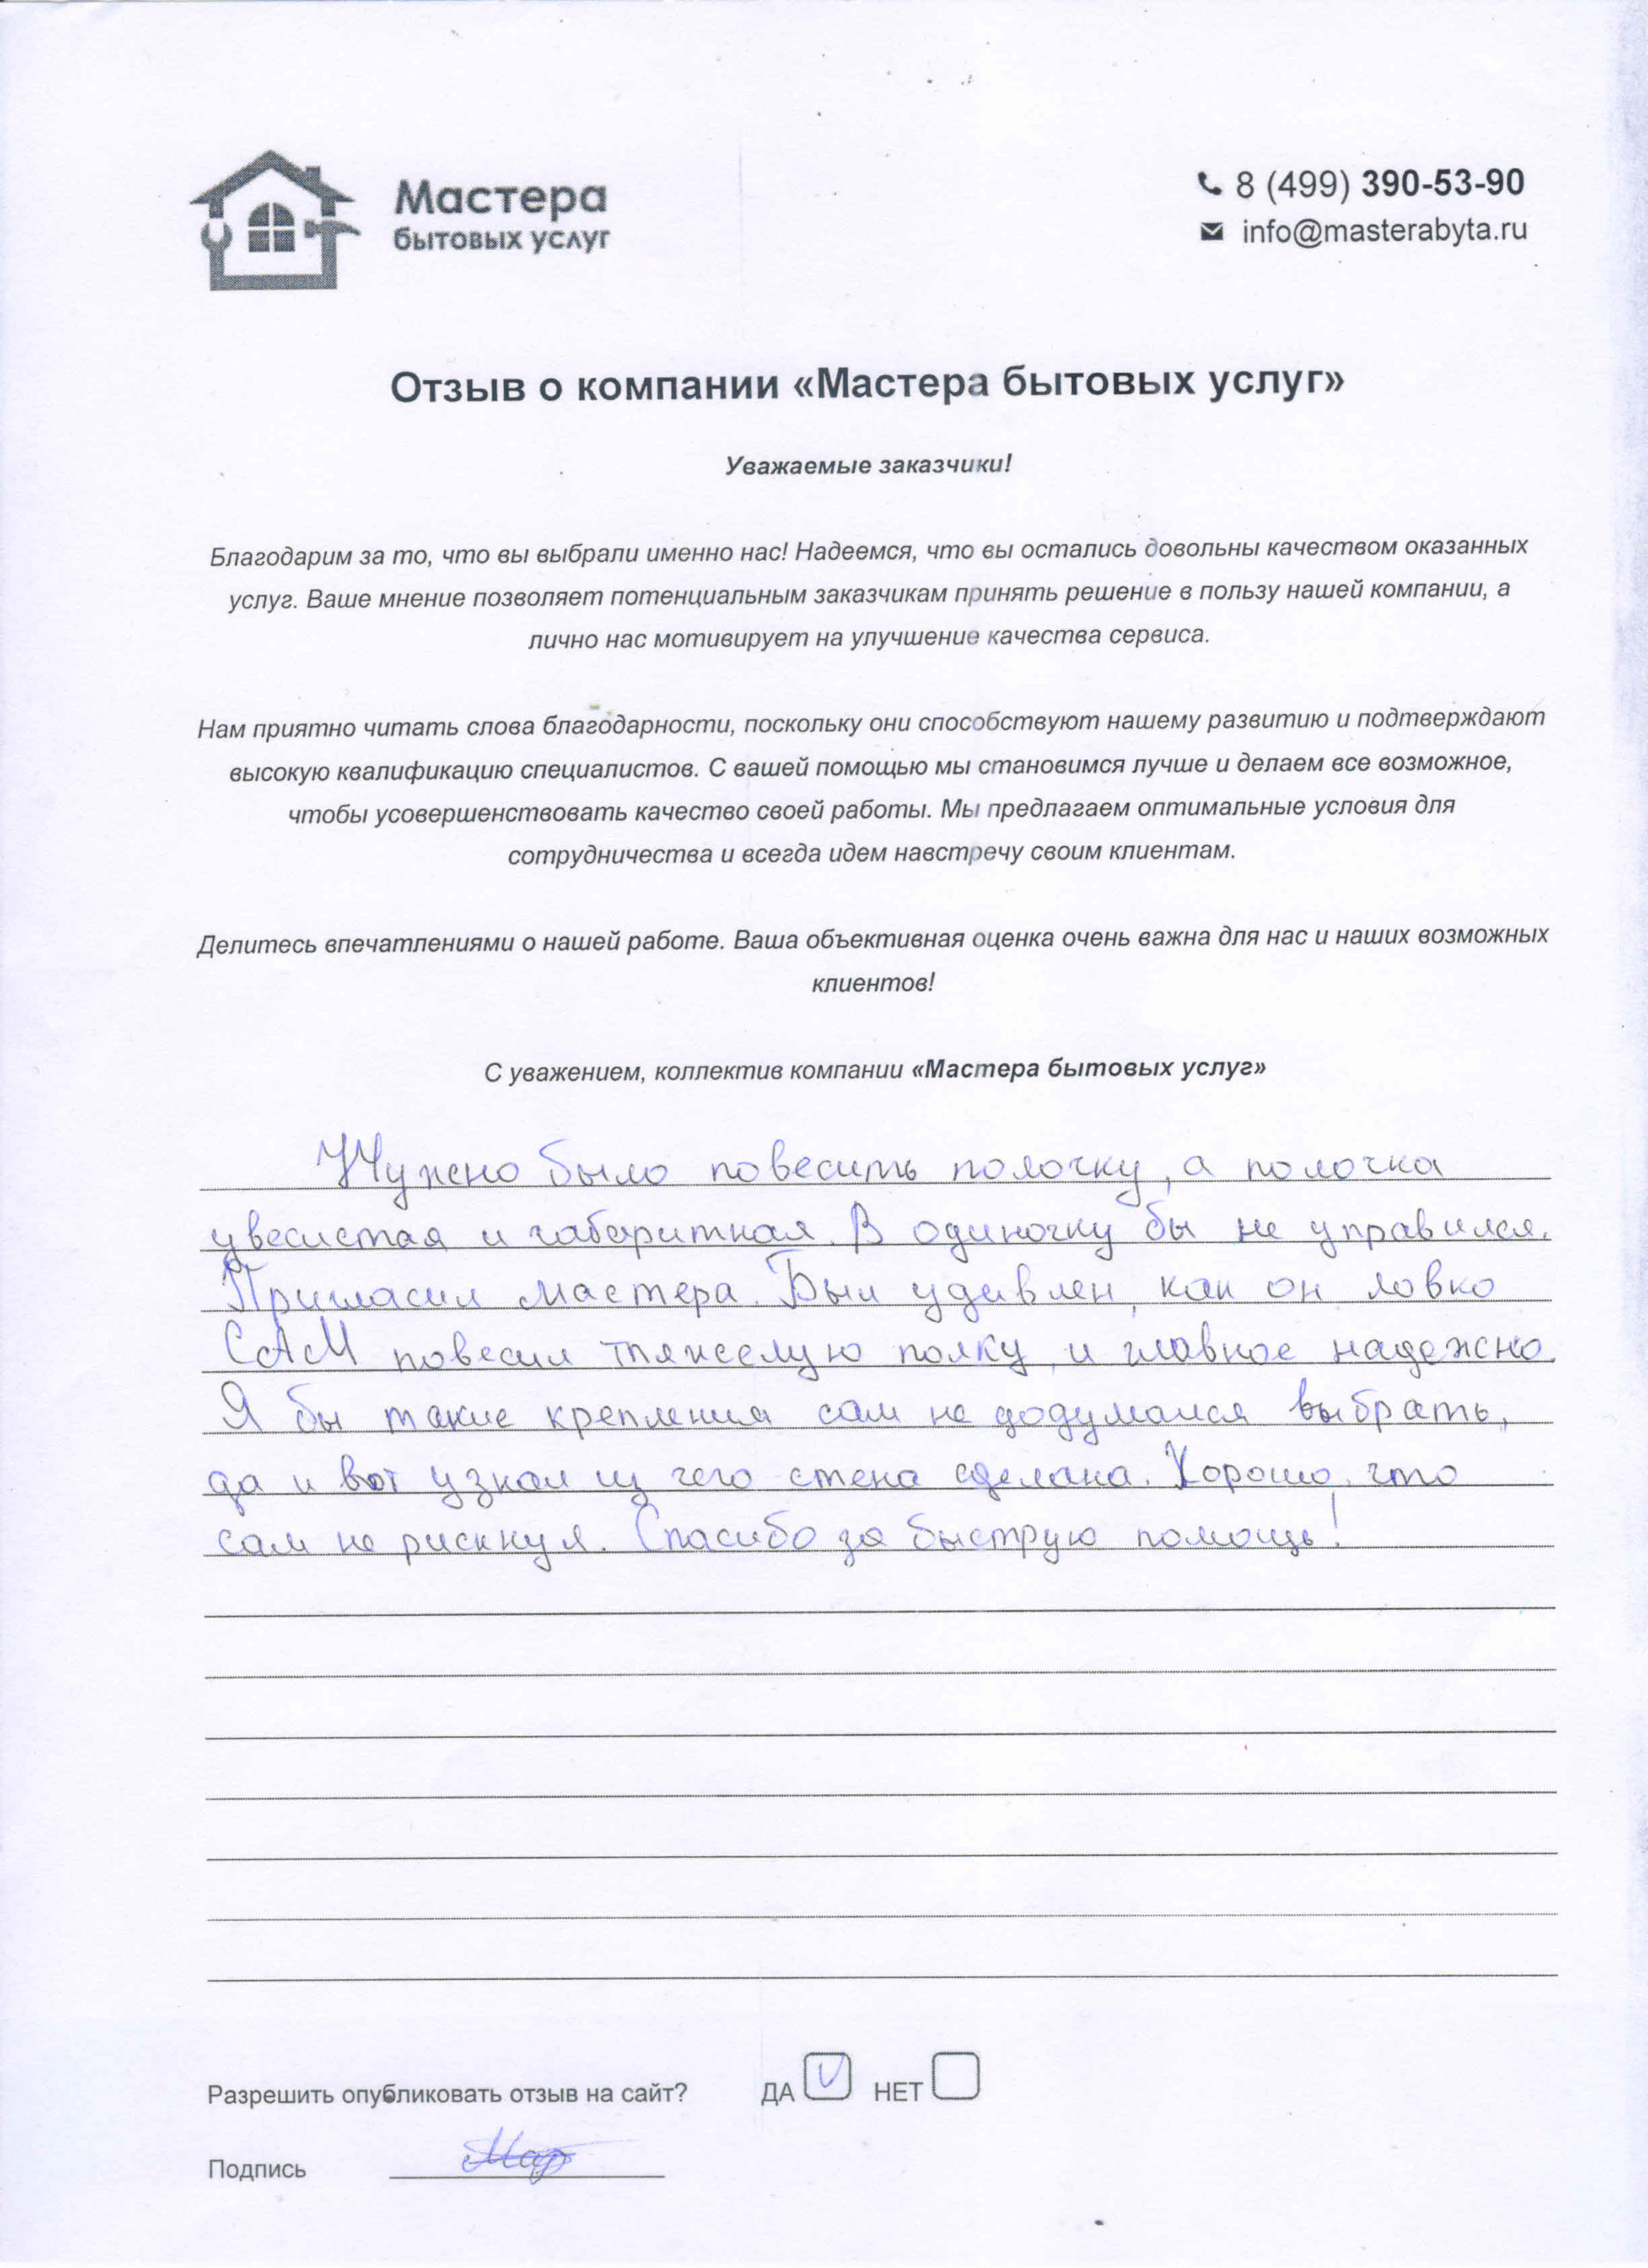 Мастера
бытовых услуг
8 (499) 390-53-90
info@masterabyta.ru
Отзыв о компании «Мастера бытовых услуг»
Уважаемые заказчики!
Благодарим за то, что вы выбрали именно нас! Надеемся, что вы остались довольны качеством оказанных
услуг. Ваше мнение позволяет потенциальным заказчикам принять решение в пользу нашей компании, а
лично нас мотивирует на улучшение качества сервиса.
Нам приятно читать слова благодарности, поскольку они способствуют нашему развитию и подтверждают
высокую квалификацию специалистов. С вашей помощью мы становимся лучше и делаем все возможное,
чтобы усовершенствовать качество своей работы. Мы предлагаем оптимальные условия для
сотрудничества и всегда идем навстречу своим клиентам.
Делитесь впечатлениями о нашей работе. Ваша объективная оценка очень важна для нас и наших возможных
клиентов!
С уважением, коллектив компании «Мастера бытовых услуг»
Нужно было повесить полочку, а полочка
увесистая и габаритная. В одиночку бы не управился.
Пригласил мастера. Был удивлен, как он ловко
САМ повесил тяжелую полку, и главное надежно.
Я бы такие крепления сам не додумался выбрать,
да и вот узнал из чего стена сделана. Хорошо, что
сам не рискнул. Спасибо за быструю помощь!
Разрешить опубликовать отзыв на сайт? ДА НЕТ
Подпись